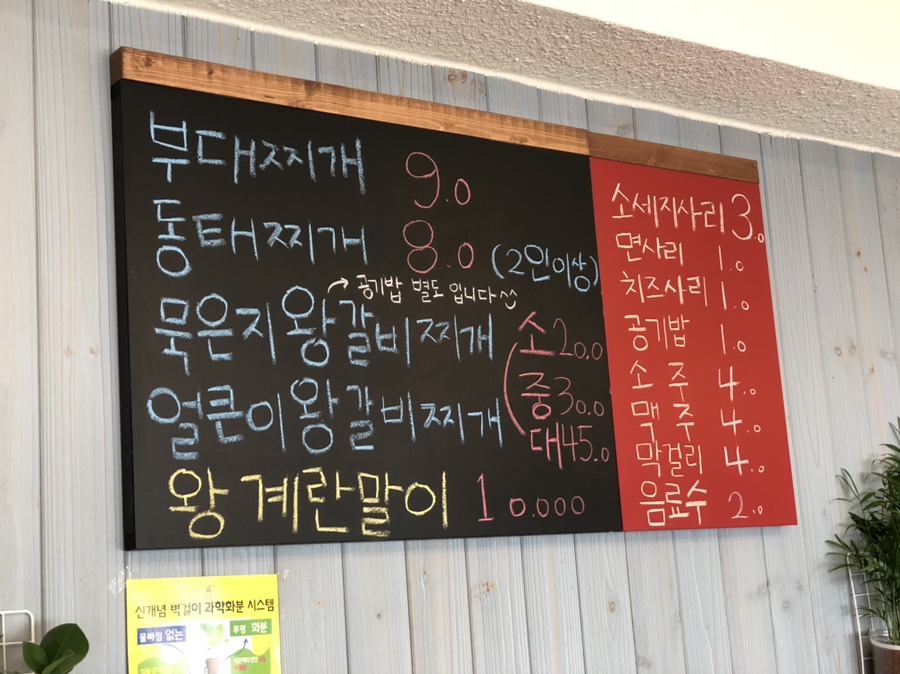 부대찌개 9.0
동태찌개 8.0 (2인이상)
→ 공기밥 별도 입니다^^
묵은지왕갈비찌개 소20.0
중30.0
얼큰이왕갈비찌개 대45.0
왕계란말이 10.000
소세지사리 3.0
면사리 1.0
치즈사리 1.0
공기밥 1.0
소주 4.0
맥주 4.0
막걸리 4.0
음료수 2.0
신개념 벽걸이 과학화분 시스템
물빠짐 없는 투명 화분